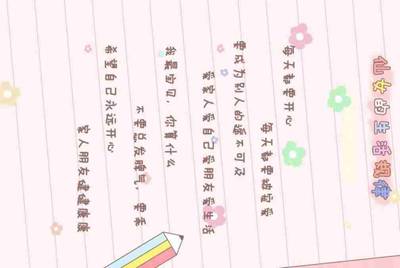 仙女的生活规律
每天都要开心
每天都要被宠爱
要成为别人的遥不可及
爱家人爱自己爱朋友爱生活
我最宝贝，你算什么
不要总发脾气，要乖
希望自己永远开心
家人朋友健健康康